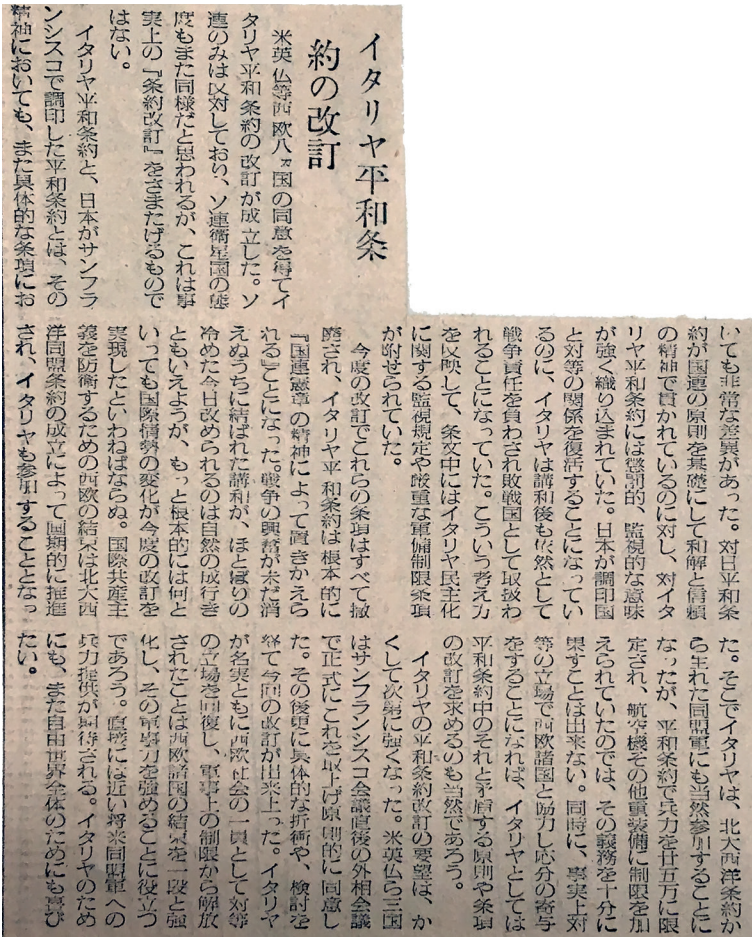 イタリヤ平和条
約の改訂
米英仏等西欧八ヵ国の同意を得てイ
タリヤ平和条約の改訂が成立した。ソ
連のみは反対しており、ソ連衛星国の態
度もまた同様だと思われるが、これは事
実上の『条約改訂』をさまたげるもので
はない。
イタリヤ平和条約と、日本がサンフラ
ンシスコで調印した平和条約とは、その
精神においても、また具体的な条項にお
いても非常な差異があった。対日平和条
約が国連の原則を基礎にして和解と信頼
の精神で貫かれているのに対し、対イタ
リヤ平和条約には懲罰的、監視的な意味
が強く織り込まれていた。日本が調印国
と対等の関係を復活することになってい
るのに、イタリヤは講和後も依然として
戦争責任を負わされ敗戦国として取扱わ
れることになっていた。こういう考え方
を反映して、条文中にはイタリヤ民主化
に関する監視規定や厳重な軍備制限条項
が附せられていた。
今度の改訂でこれらの条項はすべて撤
廃され、イタリヤ平和条約は根本的に
『国連憲章』の精神によって置きかえら
れることになった。戦争の興奮が未だ消
えぬうちに結ばれた講和が、ほと憤りの
冷めた今日改められるのは自然の成行き
ともいえようが、もっと根本的には何と
いっても国際情勢の変化が今度の改訂を
実現したといわねばならぬ。国際共産主
義を防衛するための西欧の結束は北大西
洋同盟条約の成立によって画期的に推進
され、イタリヤも参加することとなっ
た。そこでイタリヤは、北大西洋条約か
ら生れた同盟軍にも当然参加することに
なったが、平和条約で兵力を廿五万に限
定され、航空機その他重装備に制限を加
えられていたのでは、その義務を十分に
果すことは出来ない。同時に、事実上対
等の立場で西欧諸国と協力し応分の寄与
をすることになれば、イタリヤとしては
平和条約中のそれと矛盾する原則や条項
の改訂を求めるのも当然であろう。
イタリヤの平和条約改訂の要望は、か
くして次第に強くなった。米英仏ら三国
はサンフランシスコ会議直後の外相会議
で正式にこれを取上げ原則的に同意し
た。その後更に具体的な折衝や、検討を
経て今回の改訂が出来上った。イタリヤ
が名実ともに西欧社会の一員として対等
の立場を回復し、軍事上の制限から解放
されたことは西欧諸国の結束を一段と強
化し、その軍事力を強めることに役立つ
であろう。直接には近い将来同盟軍への
兵力提供が期待される。イタリヤのため
にも、また自由世界全体のためにも喜び
たい。